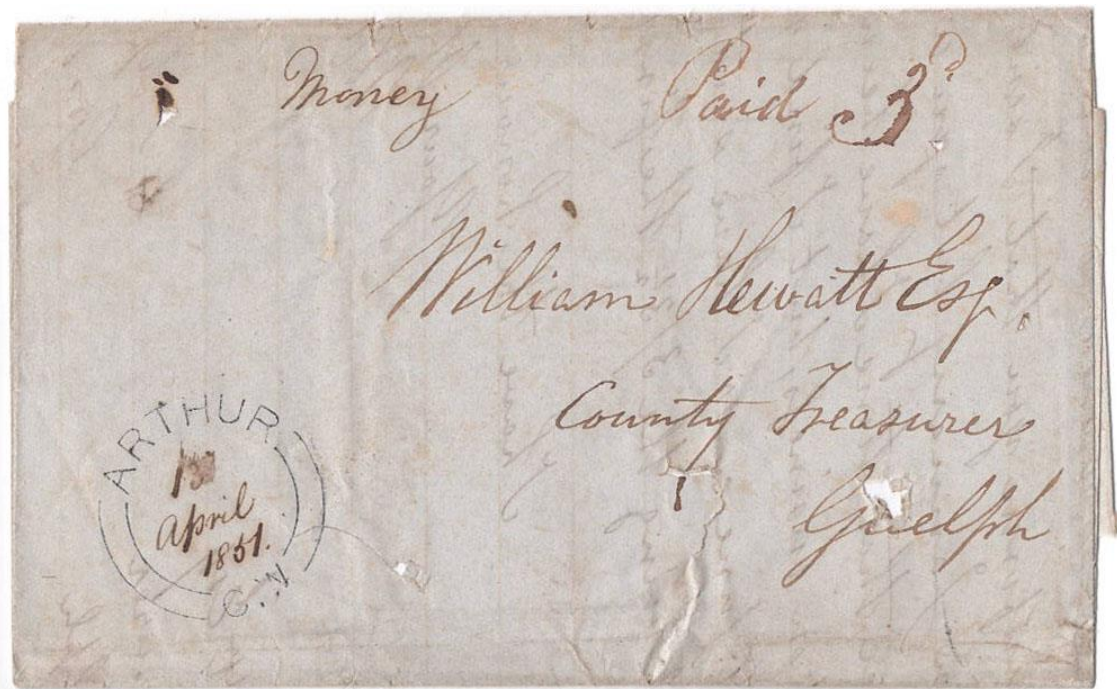 Money Paid 3d
William Hewatt Esq.
County Treasurer
Guelph
ARTHUR
April
1851.
C.W